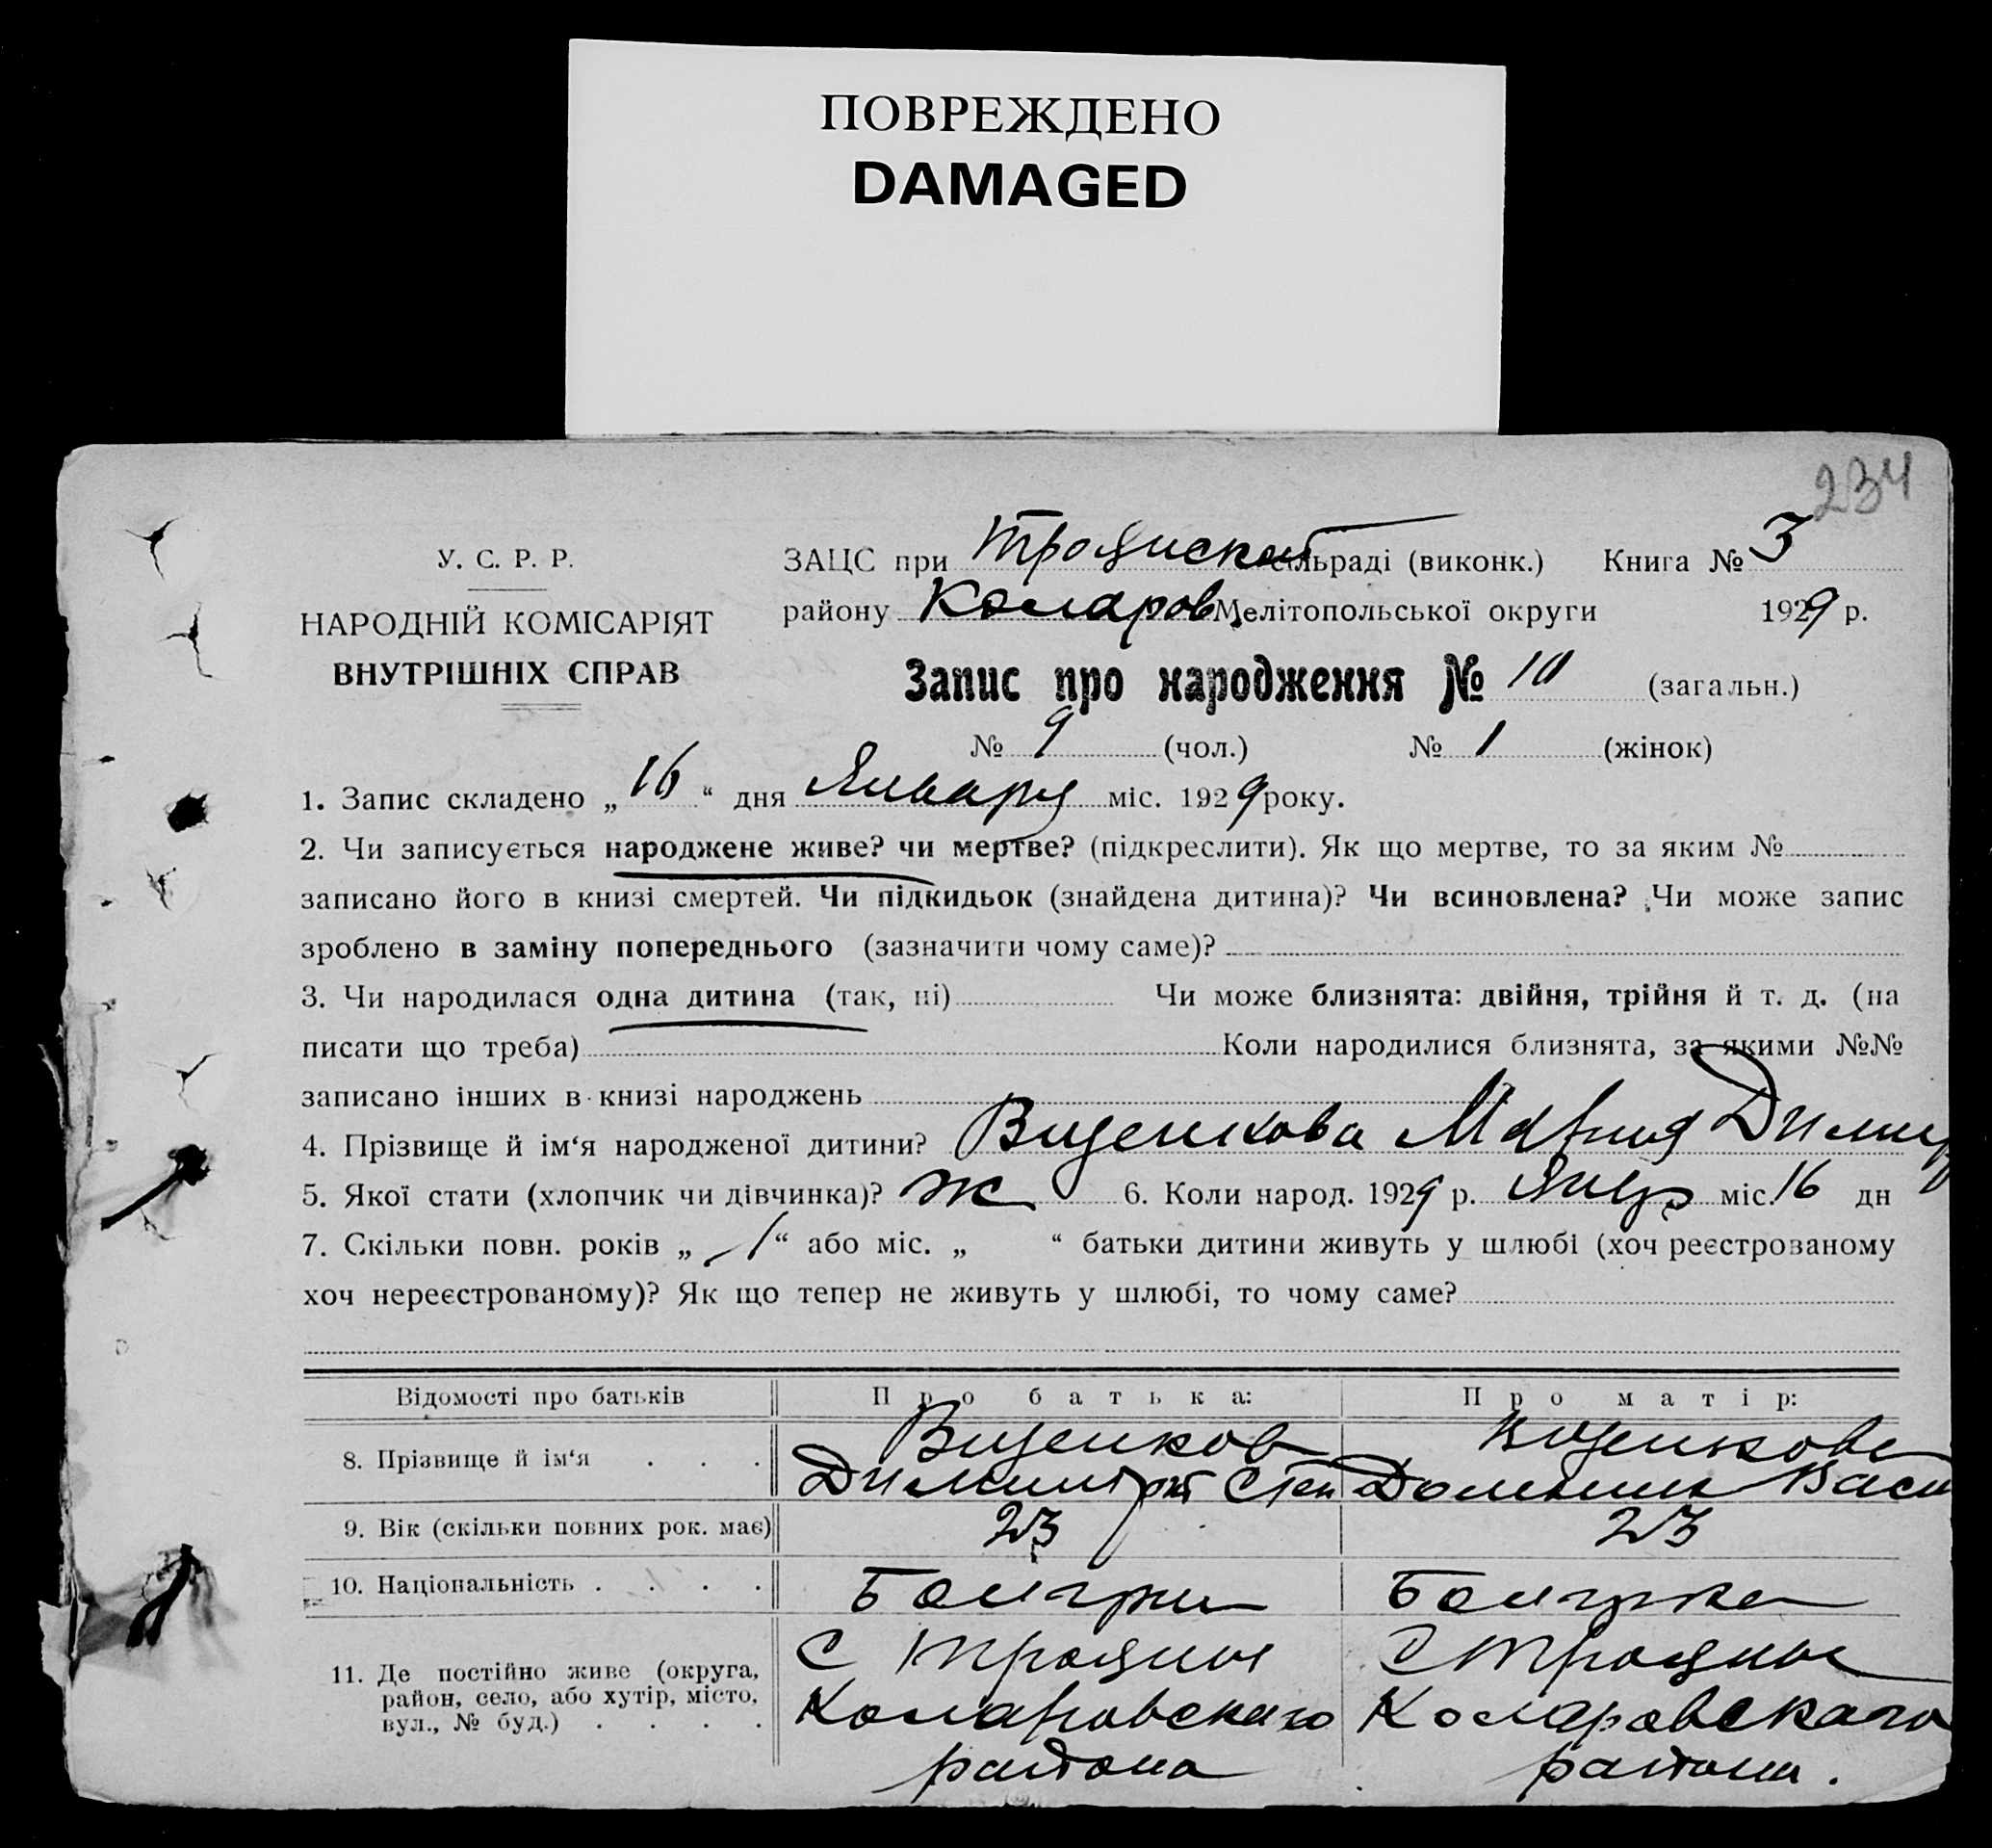 ПОВРЕЖДЕНО
DAMAGED
234
У. С. Р. Р.
НАРОДНІЙ КОМІСАРІЯТ
ВНУТРІШНІХ СПРАВ
ЗАЦС при Трояиской сільраді (виконк.) Книга № 3
району Коларов. Мелітопольської округи 1929 р.
Запис про народження № 10 (загальн.)
№ 9 (чол.) № 1 (жінок)
1. Запис складено „16“ дня Января міс. 1929 року.
2. Чи записується народжене живе? чи мертве? (підкреслити). Як що мертве, то за яким №
записано його в книзі смертей. Чи підкидьок (знайдена дитина)? Чи всиновлена? Чи може запис
зроблено в заміну попереднього (зазначити чому саме)?
3. Чи народилася одна дитина (так, ні) Чи може близнята: двійня, трійня й т. д. (на
писати що треба) Коли народилися близнята, за якими №№
записано інших в книзі народжень
4. Прізвище й ім‘я народженої дитини? Виценкова Мария Димит
5. Якої стати (хлопчик чи дівчинка)? Ж 6. Коли народ. 1929 р. Янвр міс. 16 дн
7. Скільки повн. років „1“ або міс. „ “ батьки дитини живуть у шлюбі (хоч реєстрованому
хоч нереєстрованому)? Як що тепер не живуть у шлюбі, то чому саме?
Відомості про батьків Про батька: Про матір:
8. Прізвище й ім‘я . . . Виценков Виценкова
Димитрий Степ Домника Васи
9. Вік (скільки повних рок. має) 23 23
10. Національність . . . . Болгрин Болгрка
11. Де постійно живе (округа, район, село, або хутір, місто, вул., № буд.) . . . .
С Трояны С Трояны
Коларовскаго Коларовскаго
района района.